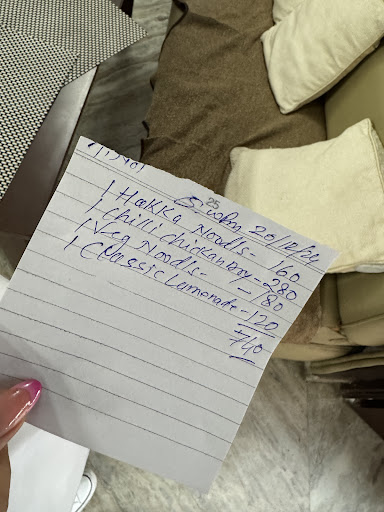 25
20/12/24
1 Hakka Noodls - 160
1 Chilli chickan - 280
1 Veg Noodls - 180
1 Classic Lamonade - 120
740